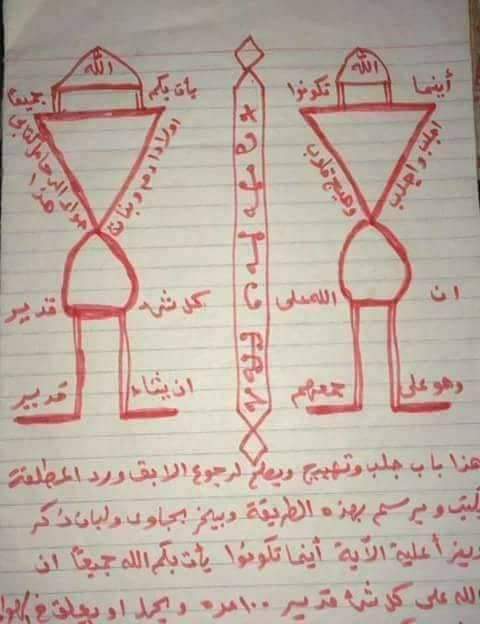 الله
الله
أينما
تكونوا
يأت بكم
جميعا
اجلب واجذب
وهيج قلوب
اولاد ادم وبنات
حواء الى حامل كتابي
هذا
ان
الله على
كل شيء
قدير
وهو على
جمعهم
ان يشاء
قدير
هذا باب جلب وتهييج ويصلح لرجوع الابق ورد المطلقة
يكتب ويرسم بهذه الطريقة ويبخر بجاوى ولبان ذكر
ويعزم عليه الآية أينما تكونوا يأت بكم الله جميعاً ان
الله على كل شيء قدير ١٠٠ مره ويحمل او يعلق في الهواء